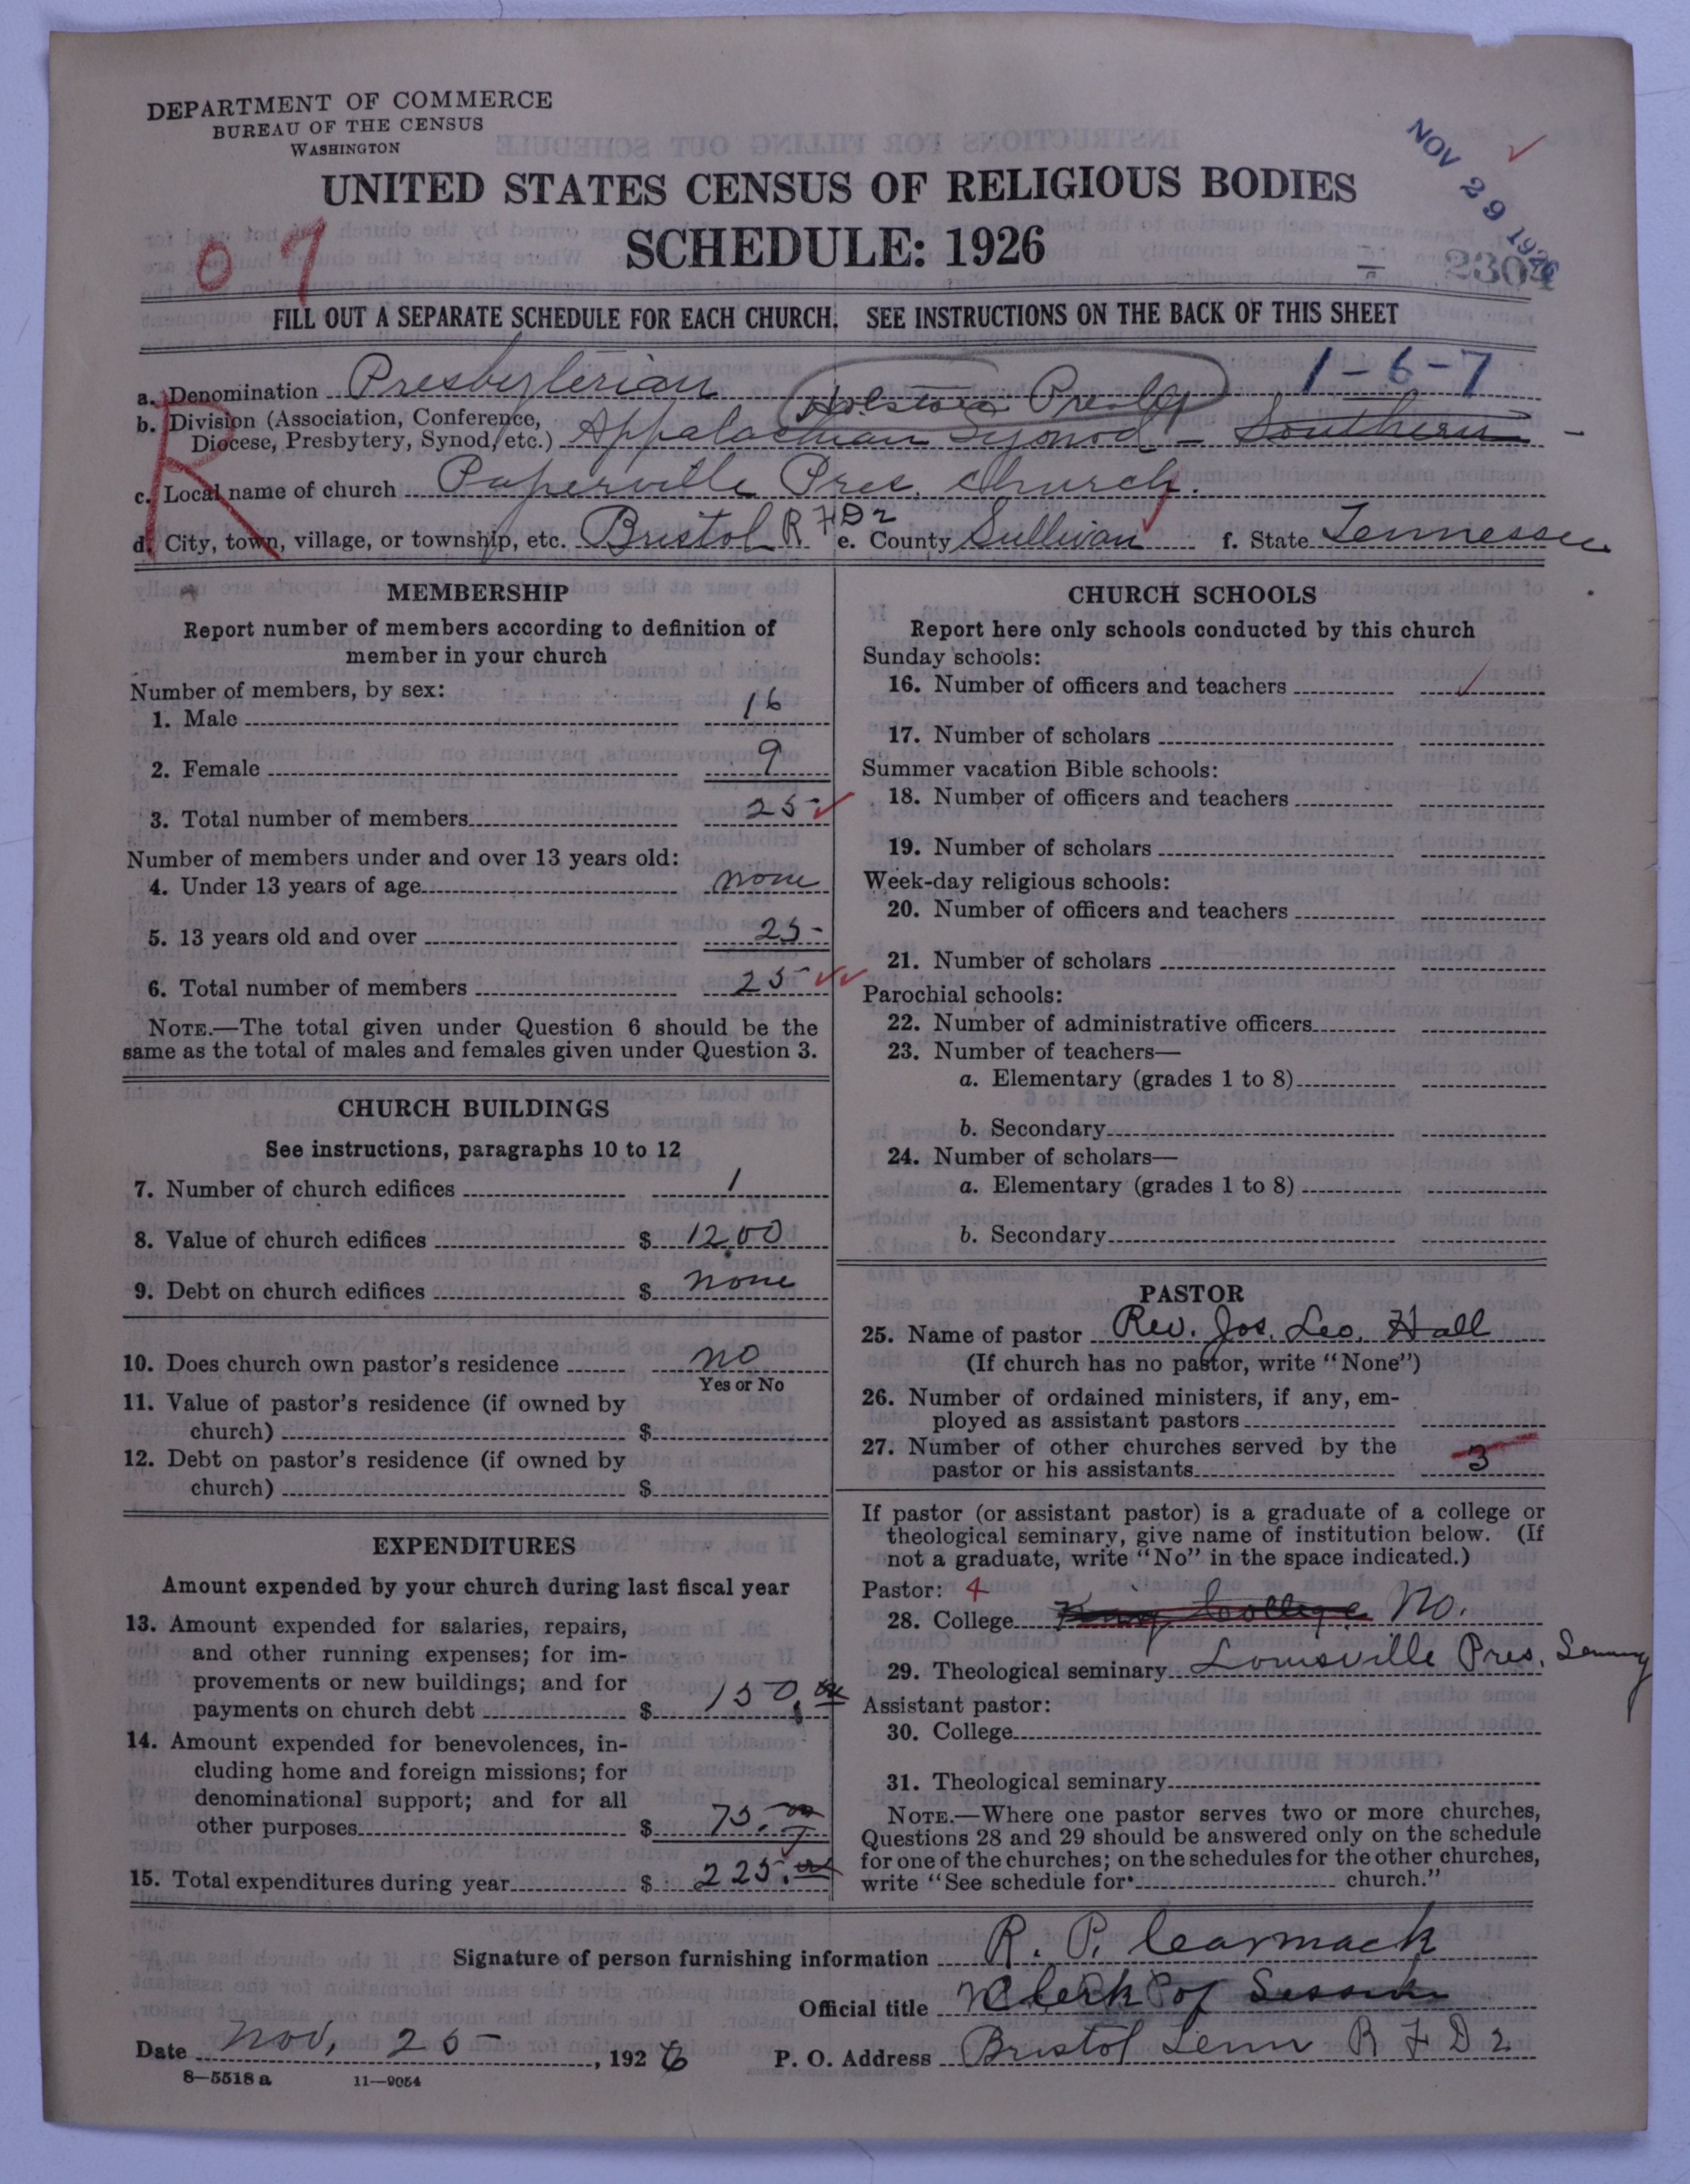 DEPARTMENT OF COMMERCE
BUREAU OF THE CENSUS
WASHINGTON
NOV 29 1926
UNITED STATES CENSUS OF RELIGIOUS BODIES
SCHEDULE: 1926
07
2304
FILL OUT A SEPARATE SCHEDULE FOR EACH CHURCH. SEE INSTRUCTIONS ON THE BACK OF THIS SHEET
1-6-7
a. Denomination Presbyterian
Holston Presby
b. Division (Association, Conference,
Diocese, Presbytery, Synod, etc.) Appalachian Synod - Southern
R
c. Local name of church Paperville Pres. Church.
d. City, town, village, or township, etc. Bristol R FD2 e. County Sullivan f. State Tennessee
MEMBERSHIP
Report number of members according to definition of
member in your church
Number of members, by sex:
1. Male 16
2. Female 9
3. Total number of members 25
Number of members under and over 13 years old:
4. Under 13 years of age none
5. 13 years old and over 25
6. Total number of members 25
NOTE.—The total given under Question 6 should be the
same as the total of males and females given under Question 3.
CHURCH BUILDINGS
See instructions, paragraphs 10 to 12
7. Number of church edifices 1
8. Value of church edifices $ 1200
9. Debt on church edifices $ none
10. Does church own pastor's residence no
Yes or No
11. Value of pastor's residence (if owned by
church) $
12. Debt on pastor's residence (if owned by
church) $
EXPENDITURES
Amount expended by your church during last fiscal year
13. Amount expended for salaries, repairs,
and other running expenses; for im-
provements or new buildings; and for
payments on church debt $ 150.00
14. Amount expended for benevolences, in-
cluding home and foreign missions; for
denominational support; and for all
other purposes $ 75.00
15. Total expenditures during year $ 225.00
CHURCH SCHOOLS
Report here only schools conducted by this church
Sunday schools:
16. Number of officers and teachers
17. Number of scholars
Summer vacation Bible schools:
18. Number of officers and teachers
19. Number of scholars
Week-day religious schools:
20. Number of officers and teachers
21. Number of scholars
Parochial schools:
22. Number of administrative officers
23. Number of teachers—
a. Elementary (grades 1 to 8)
b. Secondary
24. Number of scholars—
a. Elementary (grades 1 to 8)
b. Secondary
PASTOR
25. Name of pastor Rev. Jos. Leo. Hall
(If church has no pastor, write "None")
26. Number of ordained ministers, if any, em-
ployed as assistant pastors
27. Number of other churches served by the
pastor or his assistants 3
If pastor (or assistant pastor) is a graduate of a college or
theological seminary, give name of institution below. (If
not a graduate, write "No" in the space indicated.)
Pastor: 4
28. College King College No.
29. Theological seminary Louisville Pres. Semny
Assistant pastor:
30. College
31. Theological seminary
NOTE.—Where one pastor serves two or more churches,
Questions 28 and 29 should be answered only on the schedule
for one of the churches; on the schedules for the other churches,
write "See schedule for church."
Signature of person furnishing information R. P. Carmack
Official title Clerk of Session
Date Nov. 25, 1926 P. O. Address Bristol Tenn R F D 2
8—5518 a 11—9054